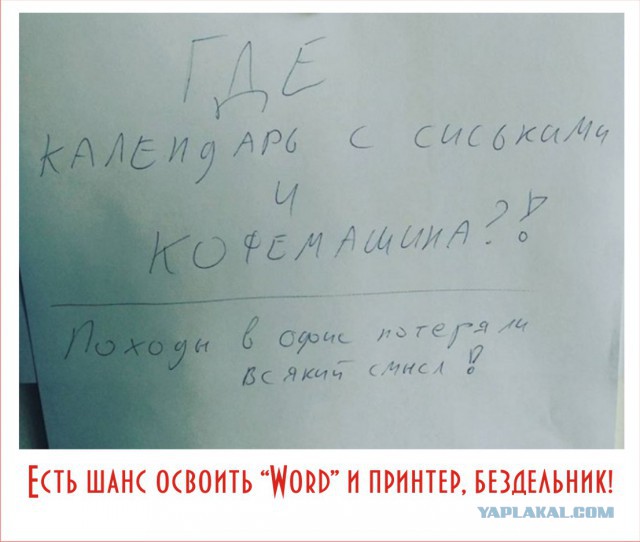 ГДЕ
КАЛЕНДАРЬ С СИСЬКАМИ
И
КОФЕМАШИНА?!
Походы в офис потеряли
всякий смысл!
Есть шанс освоить "Word" и принтер, бездельник!
YAPLAKAL.COM